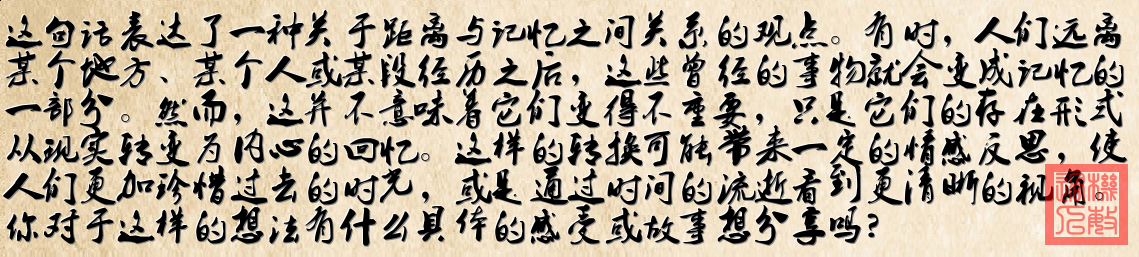 这句话表达了一种关于距离与记忆之间关系的观点。有时，人们远离
某个地方、某个人或某段经历之后，这些曾经的事物就会变成记忆的
一部分。然而，这并不意味着它们变得不重要，只是它们的存在形式
从现实转变为内心的回忆。这样的转换可能带来一定的情感反思，使
人们更加珍惜过去的时光，或是通过时间的流逝看到更清晰的视角。
你对于这样的想法有什么具体的感受或故事想分享吗？